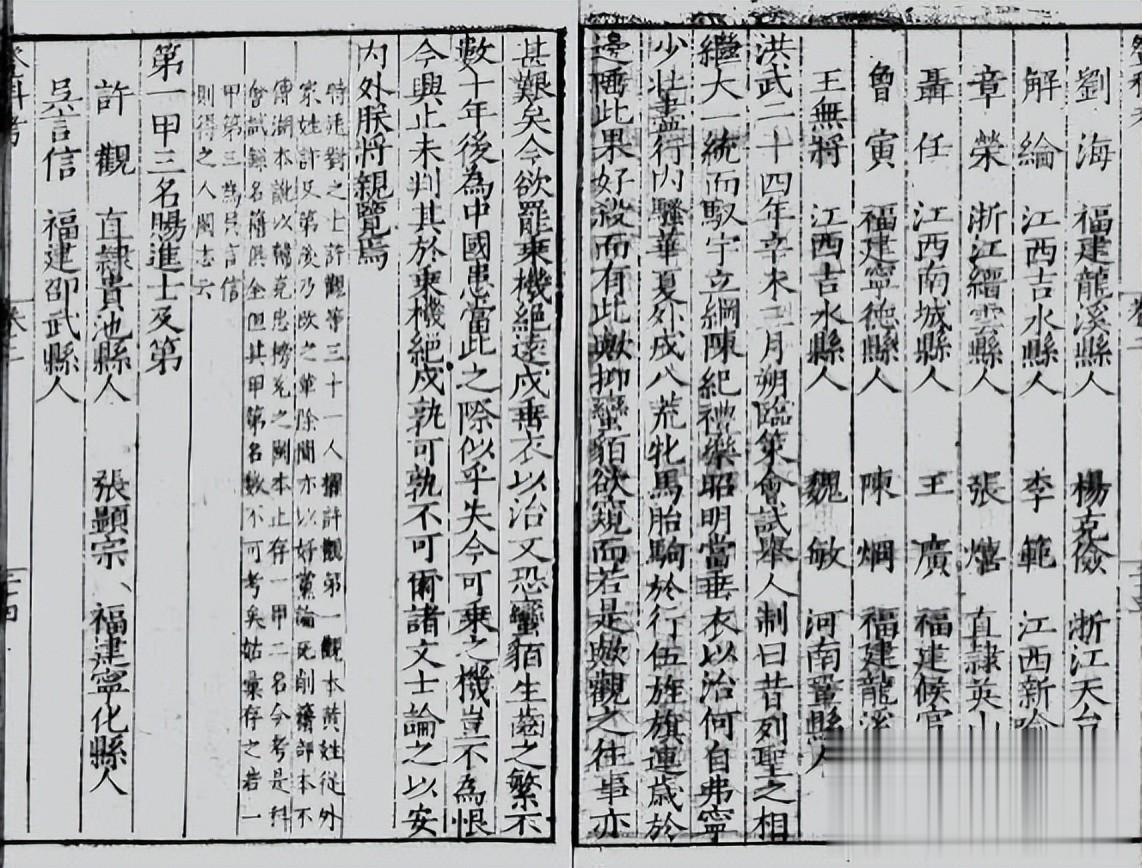 劉海　福建龍溪縣人　楊克儉　浙江天台
解綸　江西吉水縣人　李範　江西新喻
章榮　浙江縉雲縣人　張熺　直隸英山
聶任　江西南城縣人　王廣　福建候官
魯寅　福建寧德縣人　陳烱　福建龍溪
王無將　江西吉水縣人　魏敏　河南鞏縣人
洪武二十四年辛未三月朔臨策會試舉人制曰昔列聖之相
繼大一統而馭宇立綱陳紀禮樂昭明當垂衣以治何自弗寧
少壯盡行内騷華夏外戍八荒牝馬胎駒於行伍旌旗連歲於
邊陲此果好殺而有此歟抑蠻貊欲窺而若是歟觀之往事亦
甚艱矣今欲罷乘機絕遠戍垂衣以治又恐蠻貊生齒之繁不
數十年後為中國患當此之際似乎失今可乘之機豈不為恨
今興止未判其於乘機絕戍孰可孰不可爾諸文士論之以安
内外朕將親覽焉
時廷對之士許觀等三十一人擢許觀第一觀本黃姓從外
家姓許及第後乃改之革除間亦以好黨論死削籍部本不
傳湖本訛以韓克忠榜充之閩本止存一甲二名今考是科
會試錄名籍俱全但其甲第名數不可考矣姑彙存之若一
甲第三為吳言信
則得之人閩志云
第一甲三名賜進士及第
許觀　直隸貴池縣人　張顯宗、福建寧化縣人
吳言信　福建邵武縣人
登科考　卷二